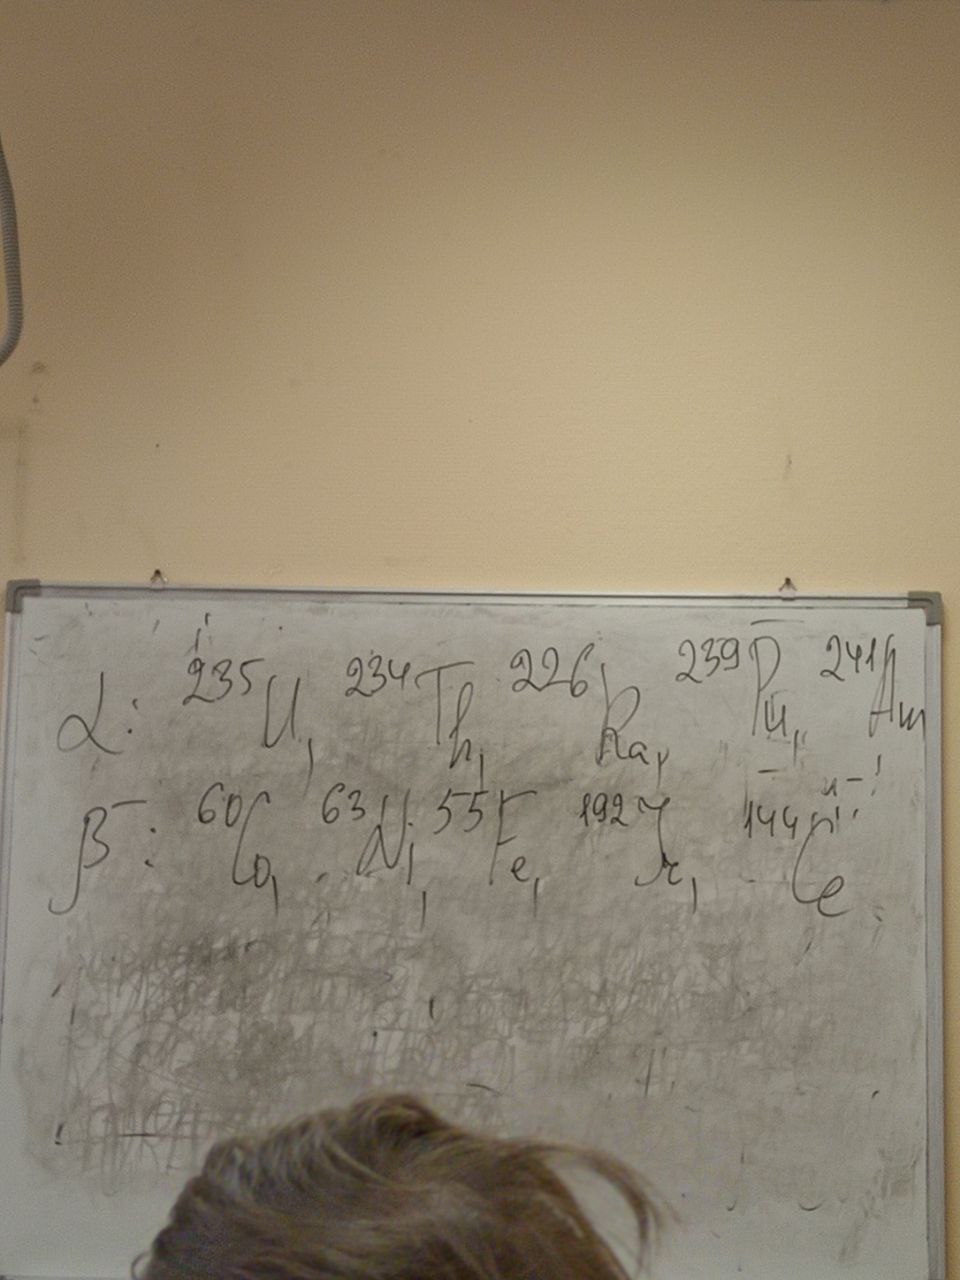 α: ²³⁵U, ²³⁴Th, ²²⁶Ra, ²³⁹Pu, ²⁴¹Am
β⁻: ⁶⁰Co, ⁶³Ni, ⁵⁵Fe, ¹⁹²Ir, ¹⁴⁴Ce